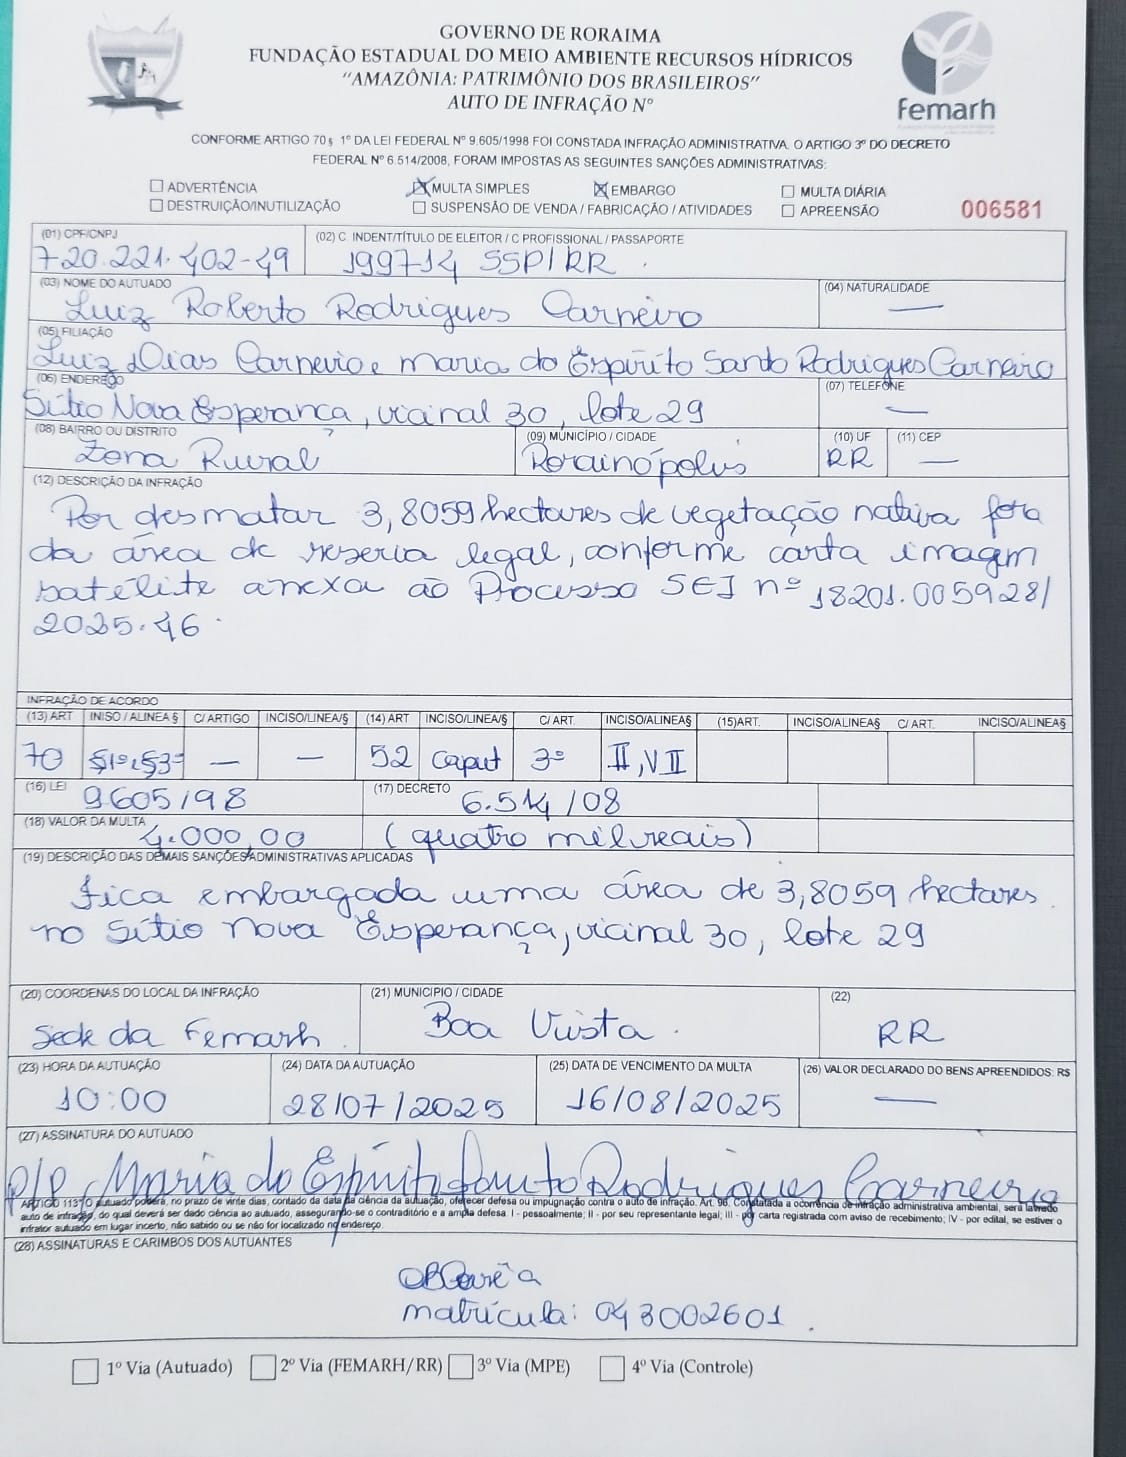 GOVERNO DE RORAIMA
FUNDAÇÃO ESTADUAL DO MEIO AMBIENTE RECURSOS HÍDRICOS
"AMAZÔNIA: PATRIMÔNIO DOS BRASILEIROS"
AUTO DE INFRAÇÃO Nº
Femarh
CONFORME ARTIGO 70 § 1º DA LEI FEDERAL Nº 9.605/1998 FOI CONSTADA INFRAÇÃO ADMINISTRATIVA. O ARTIGO 3º DO DECRETO
FEDERAL Nº 6.514/2008, FORAM IMPOSTAS AS SEGUINTES SANÇÕES ADMINISTRATIVAS:
ADVERTÊNCIA X MULTA SIMPLES X EMBARGO MULTA DIÁRIA
DESTRUIÇÃO/INUTILIZAÇÃO SUSPENSÃO DE VENDA / FABRICAÇÃO / ATIVIDADES APREENSÃO 006581
(01) CPF/CNPJ (02) C. INDENT/TÍTULO DE ELEITOR / C PROFISSIONAL / PASSAPORTE
720.221.402-49 199714 SSP/RR
(03) NOME DO AUTUADO (04) NATURALIDADE
Luiz Roberto Rodrigues Carneiro —
(05) FILIAÇÃO
Luiz Dias Carneiro e maria do Espírito Santo Rodrigues Carneiro
(06) ENDEREÇO (07) TELEFONE
Sítio Nova Esperança, vicinal 30, lote 29 —
(08) BAIRRO OU DISTRITO (09) MUNICÍPIO / CIDADE (10) UF (11) CEP
Zona Rural Rorainópolis RR —
(12) DESCRIÇÃO DA INFRAÇÃO
Por desmatar 3,8059 hectares de vegetação nativa fora
da área de reserva legal, conforme carta imagem
satélite anexa ao Processo SEI nº 18201.005928/
2025.46
INFRAÇÃO DE ACORDO
(13) ART INISO / ALINEA § C/ ARTIGO INCISO/LINEA/§ (14) ART INCISO/LINEA/§ C/ ART. INCISO/ALINEA§ (15)ART. INCISO/ALINEA§ C/ ART. INCISO/ALINEA§
70 §1º, §3º — — 52 caput 3º II, VII
(16) LEI 9605/98 (17) DECRETO 6.514/08
(18) VALOR DA MULTA 4.000,00 (quatro mil reais)
(19) DESCRIÇÃO DAS DEMAIS SANÇÕES ADMINISTRATIVAS APLICADAS
Fica embargada uma área de 3,8059 hectares
no sítio nova Esperança, vicinal 30, lote 29
(20) COORDENAS DO LOCAL DA INFRAÇÃO (21) MUNICIPIO / CIDADE (22)
Sede da Femarh Boa Vista RR
(23) HORA DA AUTUAÇÃO (24) DATA DA AUTUAÇÃO (25) DATA DE VENCIMENTO DA MULTA (26) VALOR DECLARADO DO BENS APREENDIDOS: R$
10:00 28/07/2025 16/08/2025 —
(27) ASSINATURA DO AUTUADO
p/p Maria do Espírito Santo Rodrigues Carneiro
ARTIGO 113 - O autuado poderá, no prazo de vinte dias, contado da data da ciência da autuação, oferecer defesa ou impugnação contra o auto de infração. Art. 96. Constatada a ocorrência de infração administrativa ambiental, será lavrado
auto de infração, do qual deverá ser dado ciência ao autuado, assegurando-se o contraditório e a ampla defesa. I - pessoalmente; II - por seu representante legal; III - por carta registrada com aviso de recebimento; IV - por edital, se estiver o
infrator autuado em lugar incerto, não sabido ou se não for localizado no endereço.
(28) ASSINATURAS E CARIMBOS DOS AUTUANTES
matrícula: 043002601
1º Via (Autuado) 2º Via (FEMARH/RR) 3º Via (MPE) 4º Via (Controle)